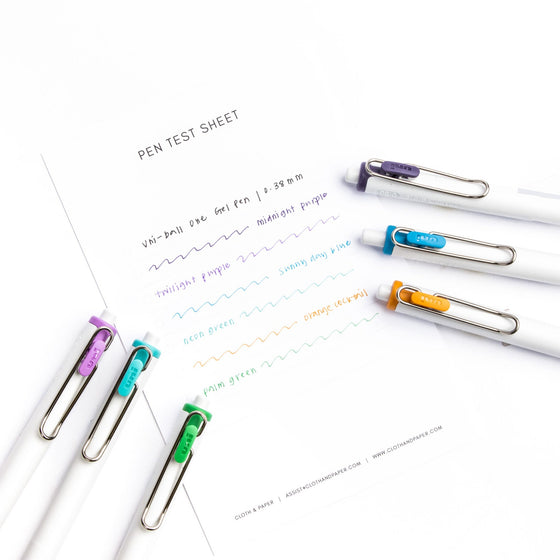 PEN TEST SHEET
uni-ball one Gel Pen | 0.38 mm
midnight purple
twilight purple
sunny day blue
neon green
orange cocktail
palm green
CLOTH & PAPER | ASSIST@CLOTHANDPAPER.COM | WWW.CLOTHANDPAPER.COM